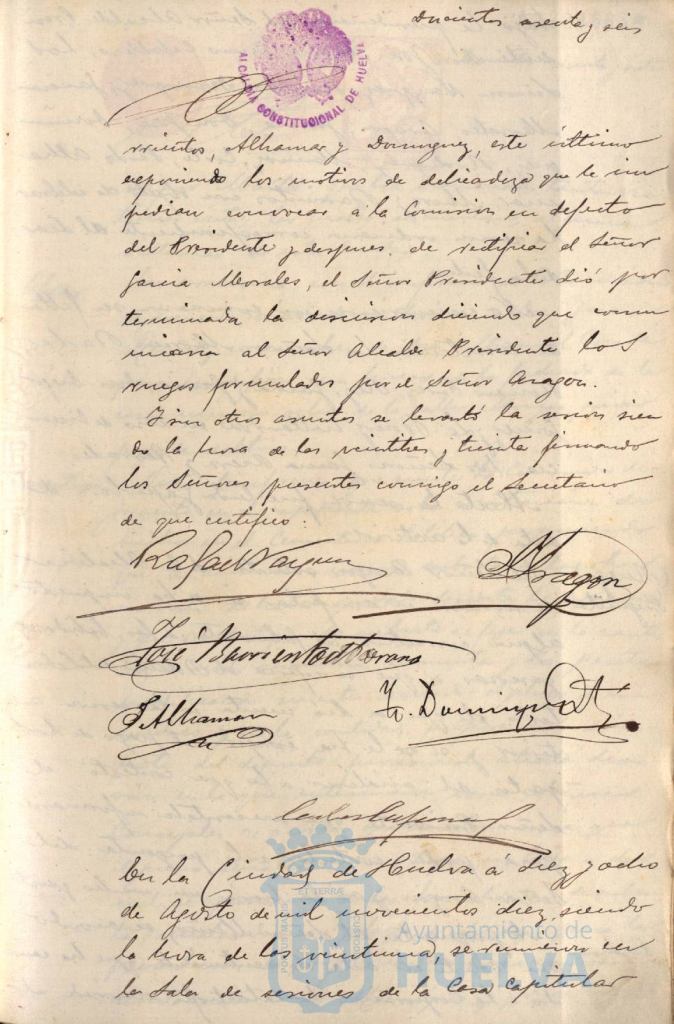 Ducientos sesenta y seis
ALCALDIA CONSTITUCIONAL DE HUELVA
rrientos, Alhamar y Dominguez, este último
exponiendo los motivos de delicadeza que le im
pedian convocar á la Comision en defecto
del Presidente y despues de rectificar el Señor
Garcia Morales, el Señor Presidente dió por
terminada la discusion diciendo que comu
nicaria al Señor Alcalde Presidente los
ruegos formulados por el Señor Aragon.
Y sin otros asuntos se levantó la sesion sien
do la hora de las veintitres y treinta firmando
los Señores presentes conmigo el Secretario
de que certifico:
Rafael Vazquez
Aragón
José Barrientos Morano
J. Alhamar
F. Dominguez
En la Ciudad de Huelva á diez y ocho
de Agosto de mil novecientos diez, siendo
la hora de las veintiuna, se reunieron en
la Sala de sesiones de la Casa Capitular
Ayuntamiento de
HUELVA